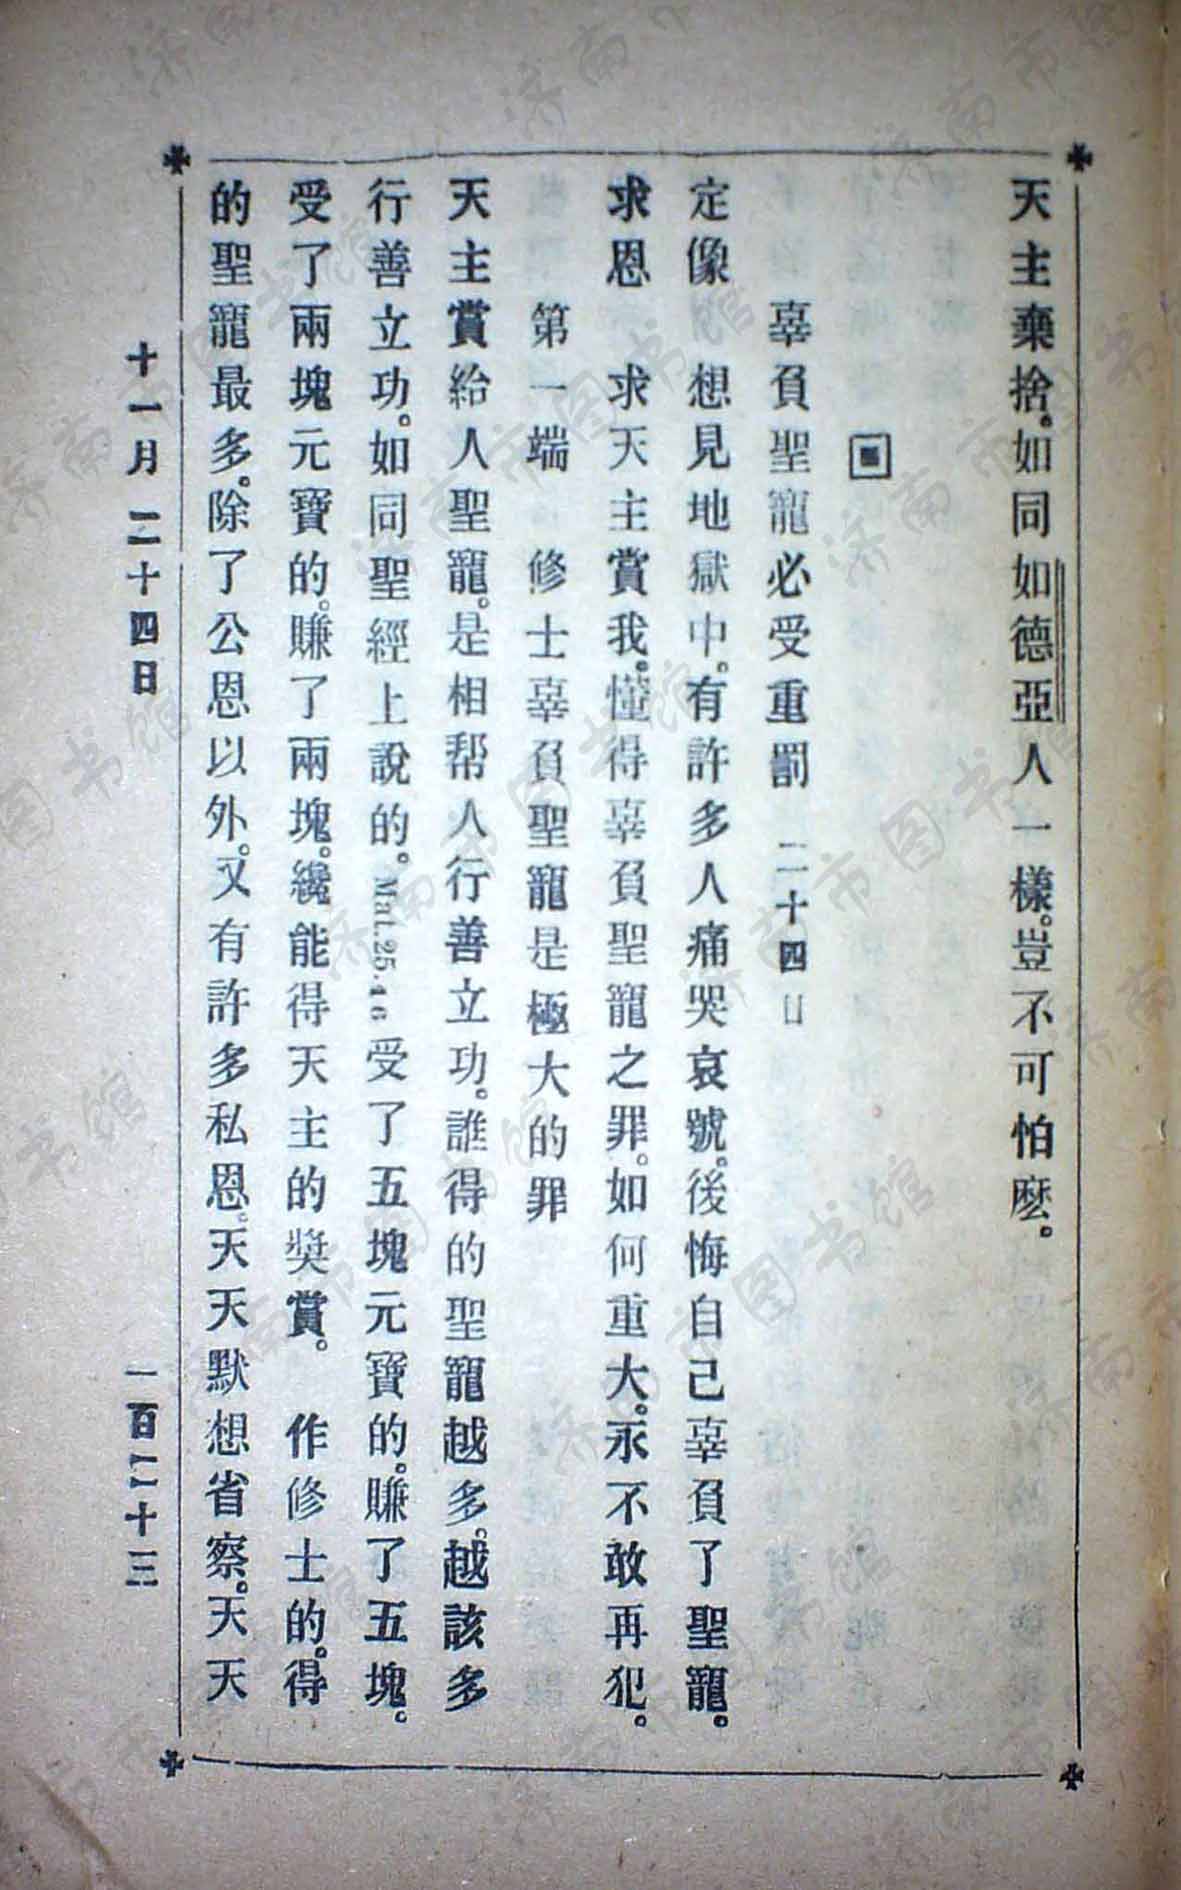 天主棄捨。如同如德亞人一樣。豈不可怕麽。
辜負聖寵必受重罰 二十四日
定像 想見地獄中。有許多人痛哭哀號。後悔自己辜負了聖寵。
求恩 求天主賞我。懂得辜負聖寵之罪。如何重大。永不敢再犯。
第一端 修士辜負聖寵是極大的罪
天主賞給人聖寵。是相帮人行善立功。誰得的聖寵越多。越該多
行善立功。如同聖經上說的。Mat.25.16 受了五塊元寶的。賺了五塊。
受了兩塊元寶的。賺了兩塊。纔能得天主的奬賞。 作修士的。得
的聖寵最多。除了公恩以外。又有許多私恩。天天默想省察。天天
十一月二十四日 一百二十三
济南市图书馆